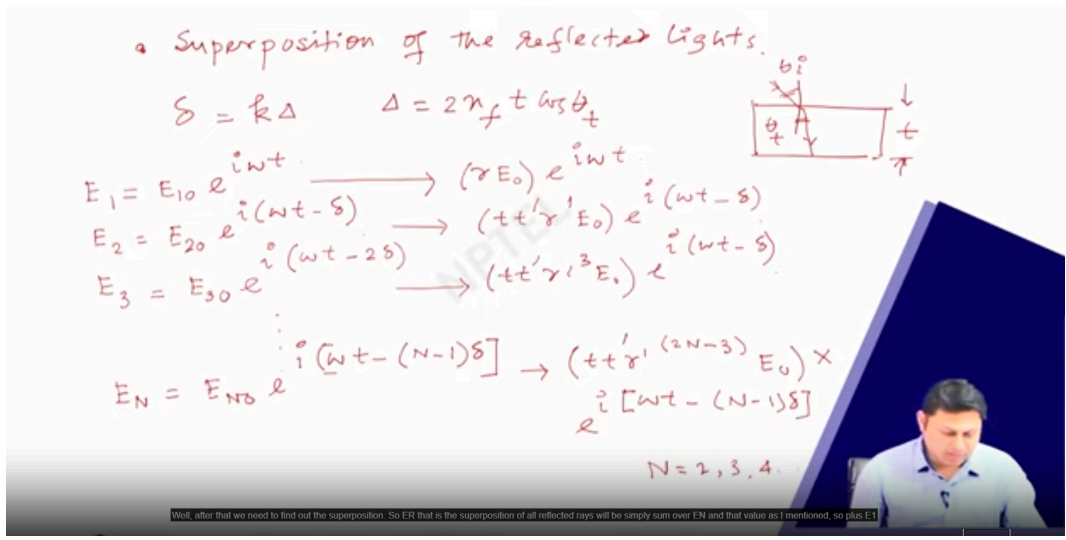 • Superposition of the reflected lights.
δ = kΔ Δ = 2n_f t cosθ_t
θi
θt
t
E₁ = E₁₀ e^{iωt} → (rE₀) e^{iωt}
E₂ = E₂₀ e^{i(ωt-δ)} → (tt'r'E₀) e^{i(ωt-δ)}
E₃ = E₃₀ e^{i(ωt-2δ)} → (tt'r'³E₀) e^{i(ωt-δ)}
⋮
E_N = E_{N0} e^{i[ωt-(N-1)δ]} → (tt'r'^{(2N-3)} E₀) ×
e^{i[ωt-(N-1)δ]}
N = 2, 3, 4.
NPTEL
Well, after that we need to find out the superposition. So ER that is the superposition of all reflected rays will be simply sum over EN and that value as I mentioned, so plus E1